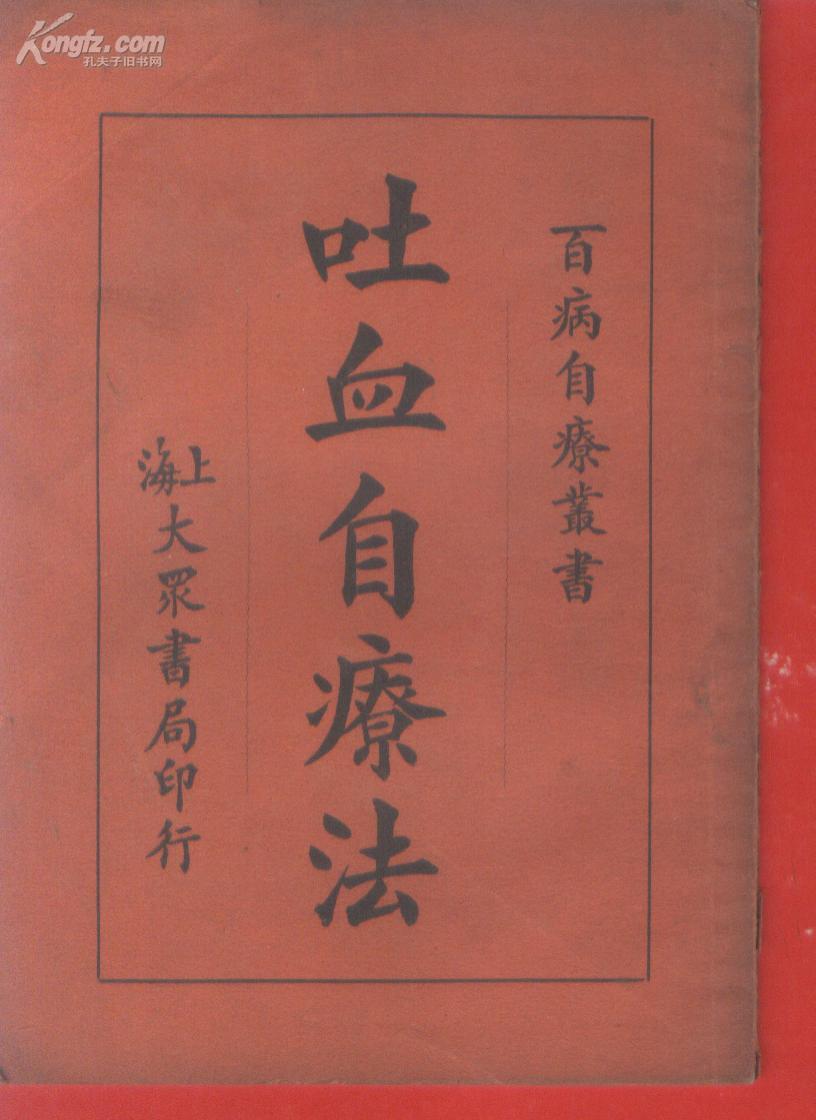 Kongfz.com
孔夫子旧书网
百病自療叢書
吐血自療法
上海大眾書局印行